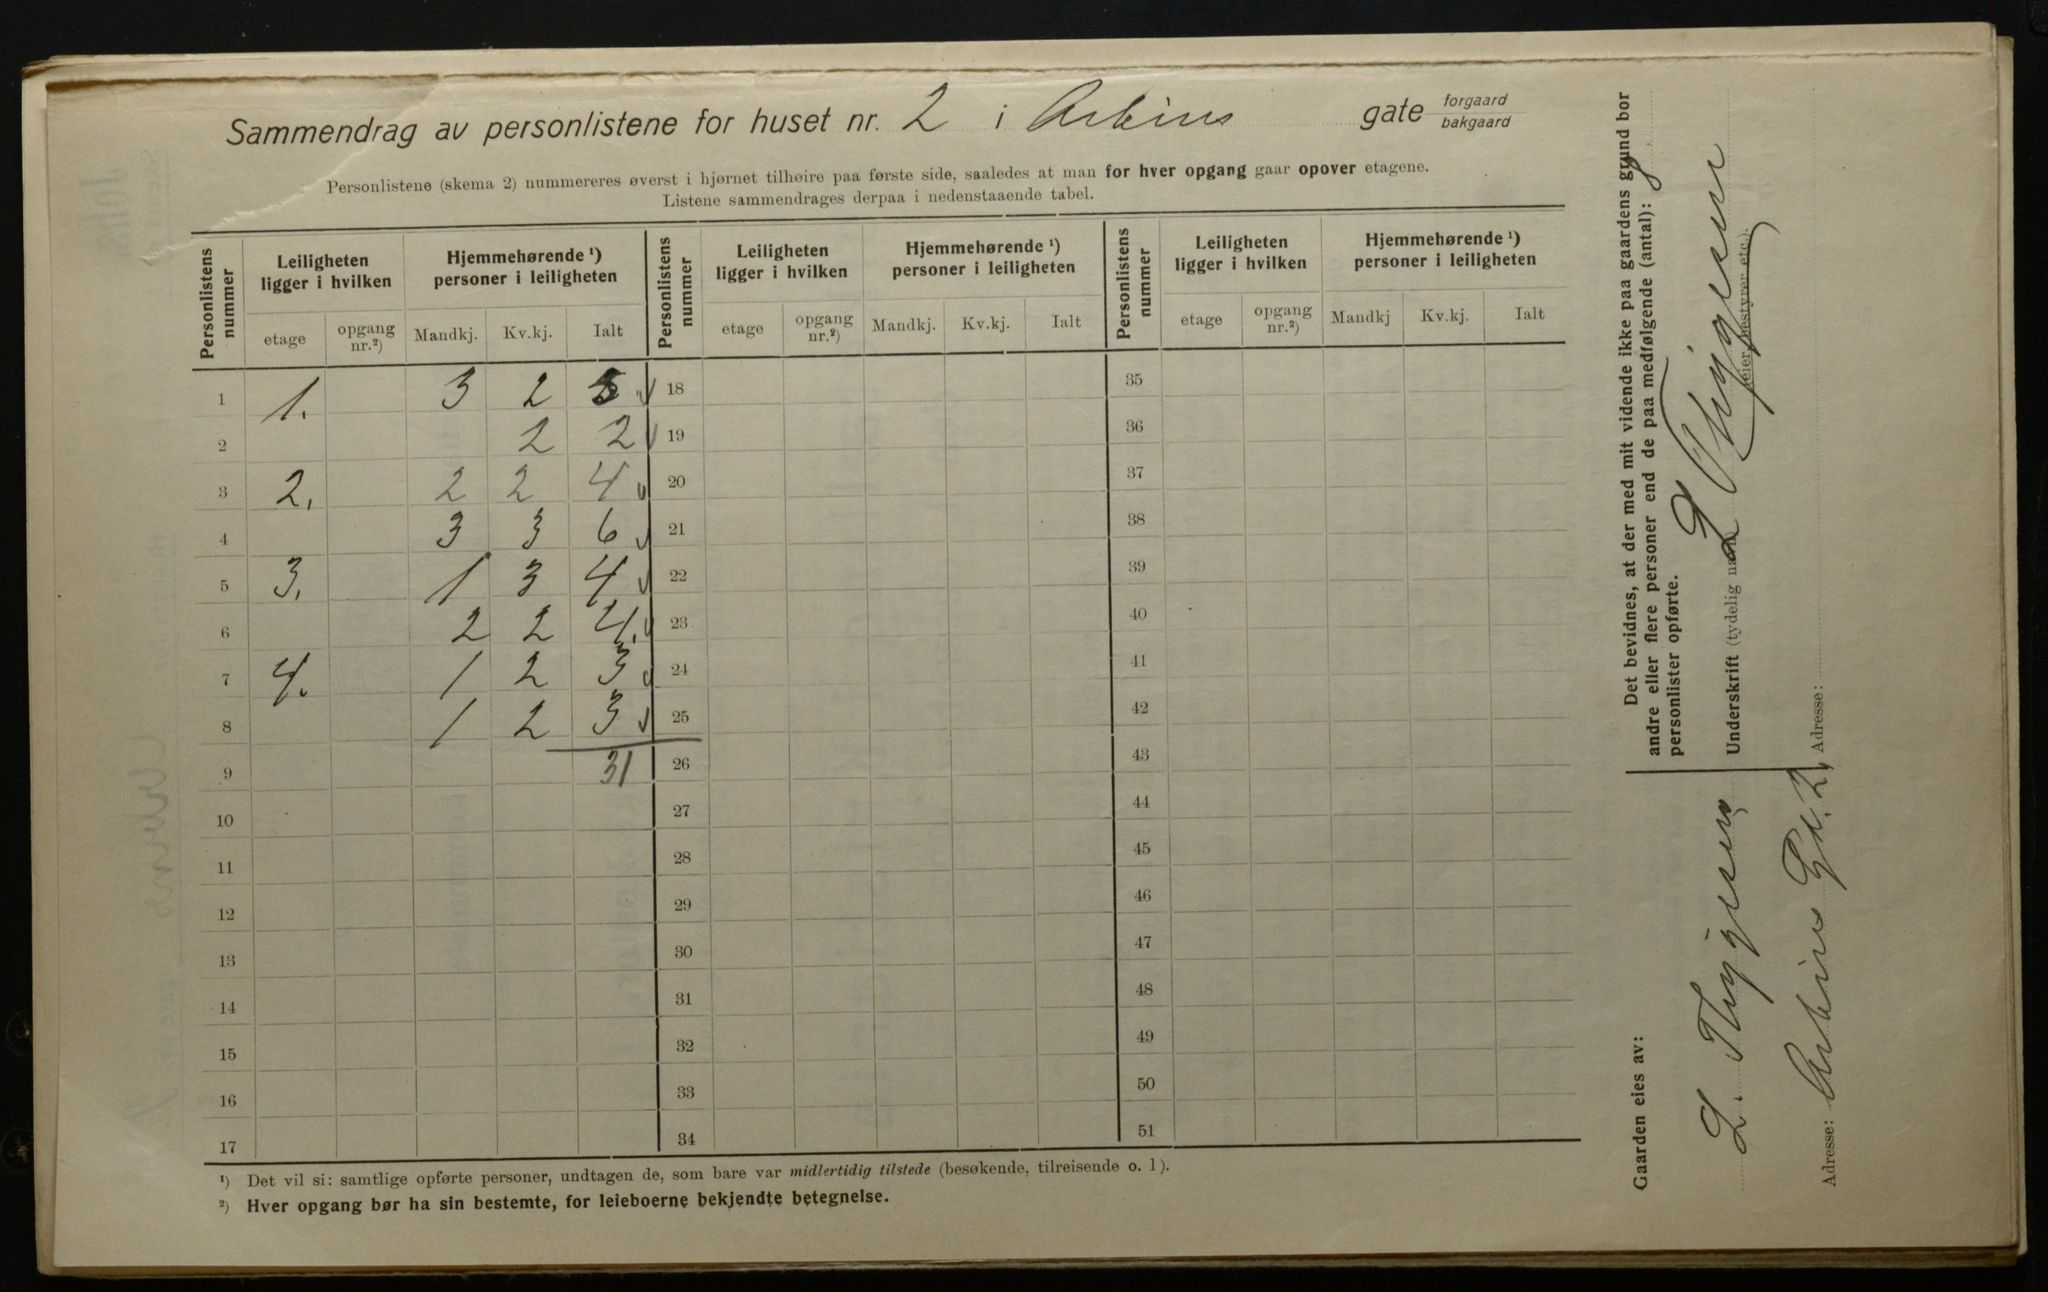 Sammendrag av personlistene for huset nr. 2 i Arbins gate forgaard bakgaard
Personlistene (skema 2) nummereres øverst i hjørnet tilhøire paa første side, saaledes at man for hver opgang gaar opover etagene.
Listene sammendrages derpaa i nedenstaaende tabel.
Personlistens nummer | Leiligheten ligger i hvilken | Hjemmehørende ¹) personer i leiligheten | Personlistens nummer | Leiligheten ligger i hvilken | Hjemmehørende ¹) personer i leiligheten | Personlistens nummer | Leiligheten ligger i hvilken | Hjemmehørende ¹) personer i leiligheten
etage | opgang nr.²) | Mandkj. | Kv.kj. | Ialt | etage | opgang nr.²) | Mandkj. | Kv.kj. | Ialt | etage | opgang nr.²) | Mandkj | Kv.kj. | Ialt
1 | 1. | 3 | 2 | 5 | 18 | 35
2 | 2 | 2 | 19 | 36
3 | 2. | 2 | 2 | 4 | 20 | 37
4 | 3 | 3 | 6 | 21 | 38
5 | 3. | 1 | 3 | 4 | 22 | 39
6 | 2 | 2 | 4. | 23 | 40
7 | 4. | 1 | 2 | 3 | 24 | 41
8 | 1 | 2 | 3 | 25 | 42
9 | 31 | 26 | 43
10 | 27 | 44
11 | 28 | 45
12 | 29 | 46
13 | 30 | 47
14 | 31 | 48
15 | 32 | 49
16 | 33 | 50
17 | 34 | 51
¹) Det vil si: samtlige opførte personer, undtagen de, som bare var midlertidig tilstede (besøkende, tilreisende o. l).
²) Hver opgang bør ha sin bestemte, for leieboerne bekjendte betegnelse.
Det bevidnes, at der med mit vidende ikke paa gaardens grund bor
andre eller flere personer end de paa medfølgende (antal): 8
personlister opførte.
Underskrift (tydelig navn): L Thygesen
(eier, bestyrer etc.).
Adresse:
Gaarden eies av:
L. Thygesen
Adresse: Arbins Gt. 2,